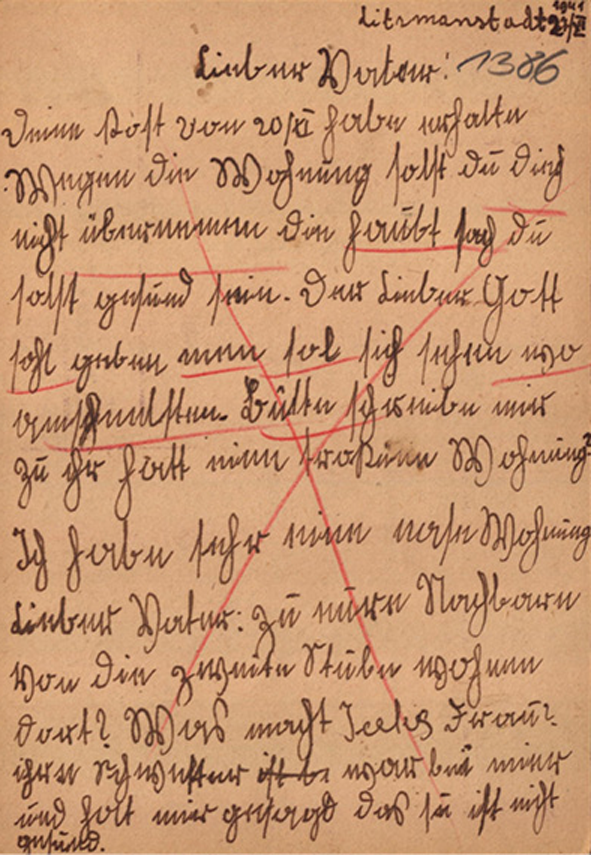 Litzmanstadt 1941 23/XI
Lieber Vater: 1386
Deine Post von 20/XI habe erhalte
Wegen die Wohnung solst du dich
nicht übernemen die haubt sach du
solst gesund sein. Der Lieber Gott
sohl geben men sol sich sehen wo
amschnelsten. Bütte schreibe mir
zu ihr hatt eine trokene Wohnung?
Ich habe sehr eine nase Wohnung
Lieber Vater: zu eure Nachbarn
von die zweite Stube wohnen
dort? Was macht Iceks Frau?
ihre Schwester ist be war bei mir
und hatt mir gesagd das sie ist nicht
gesund.